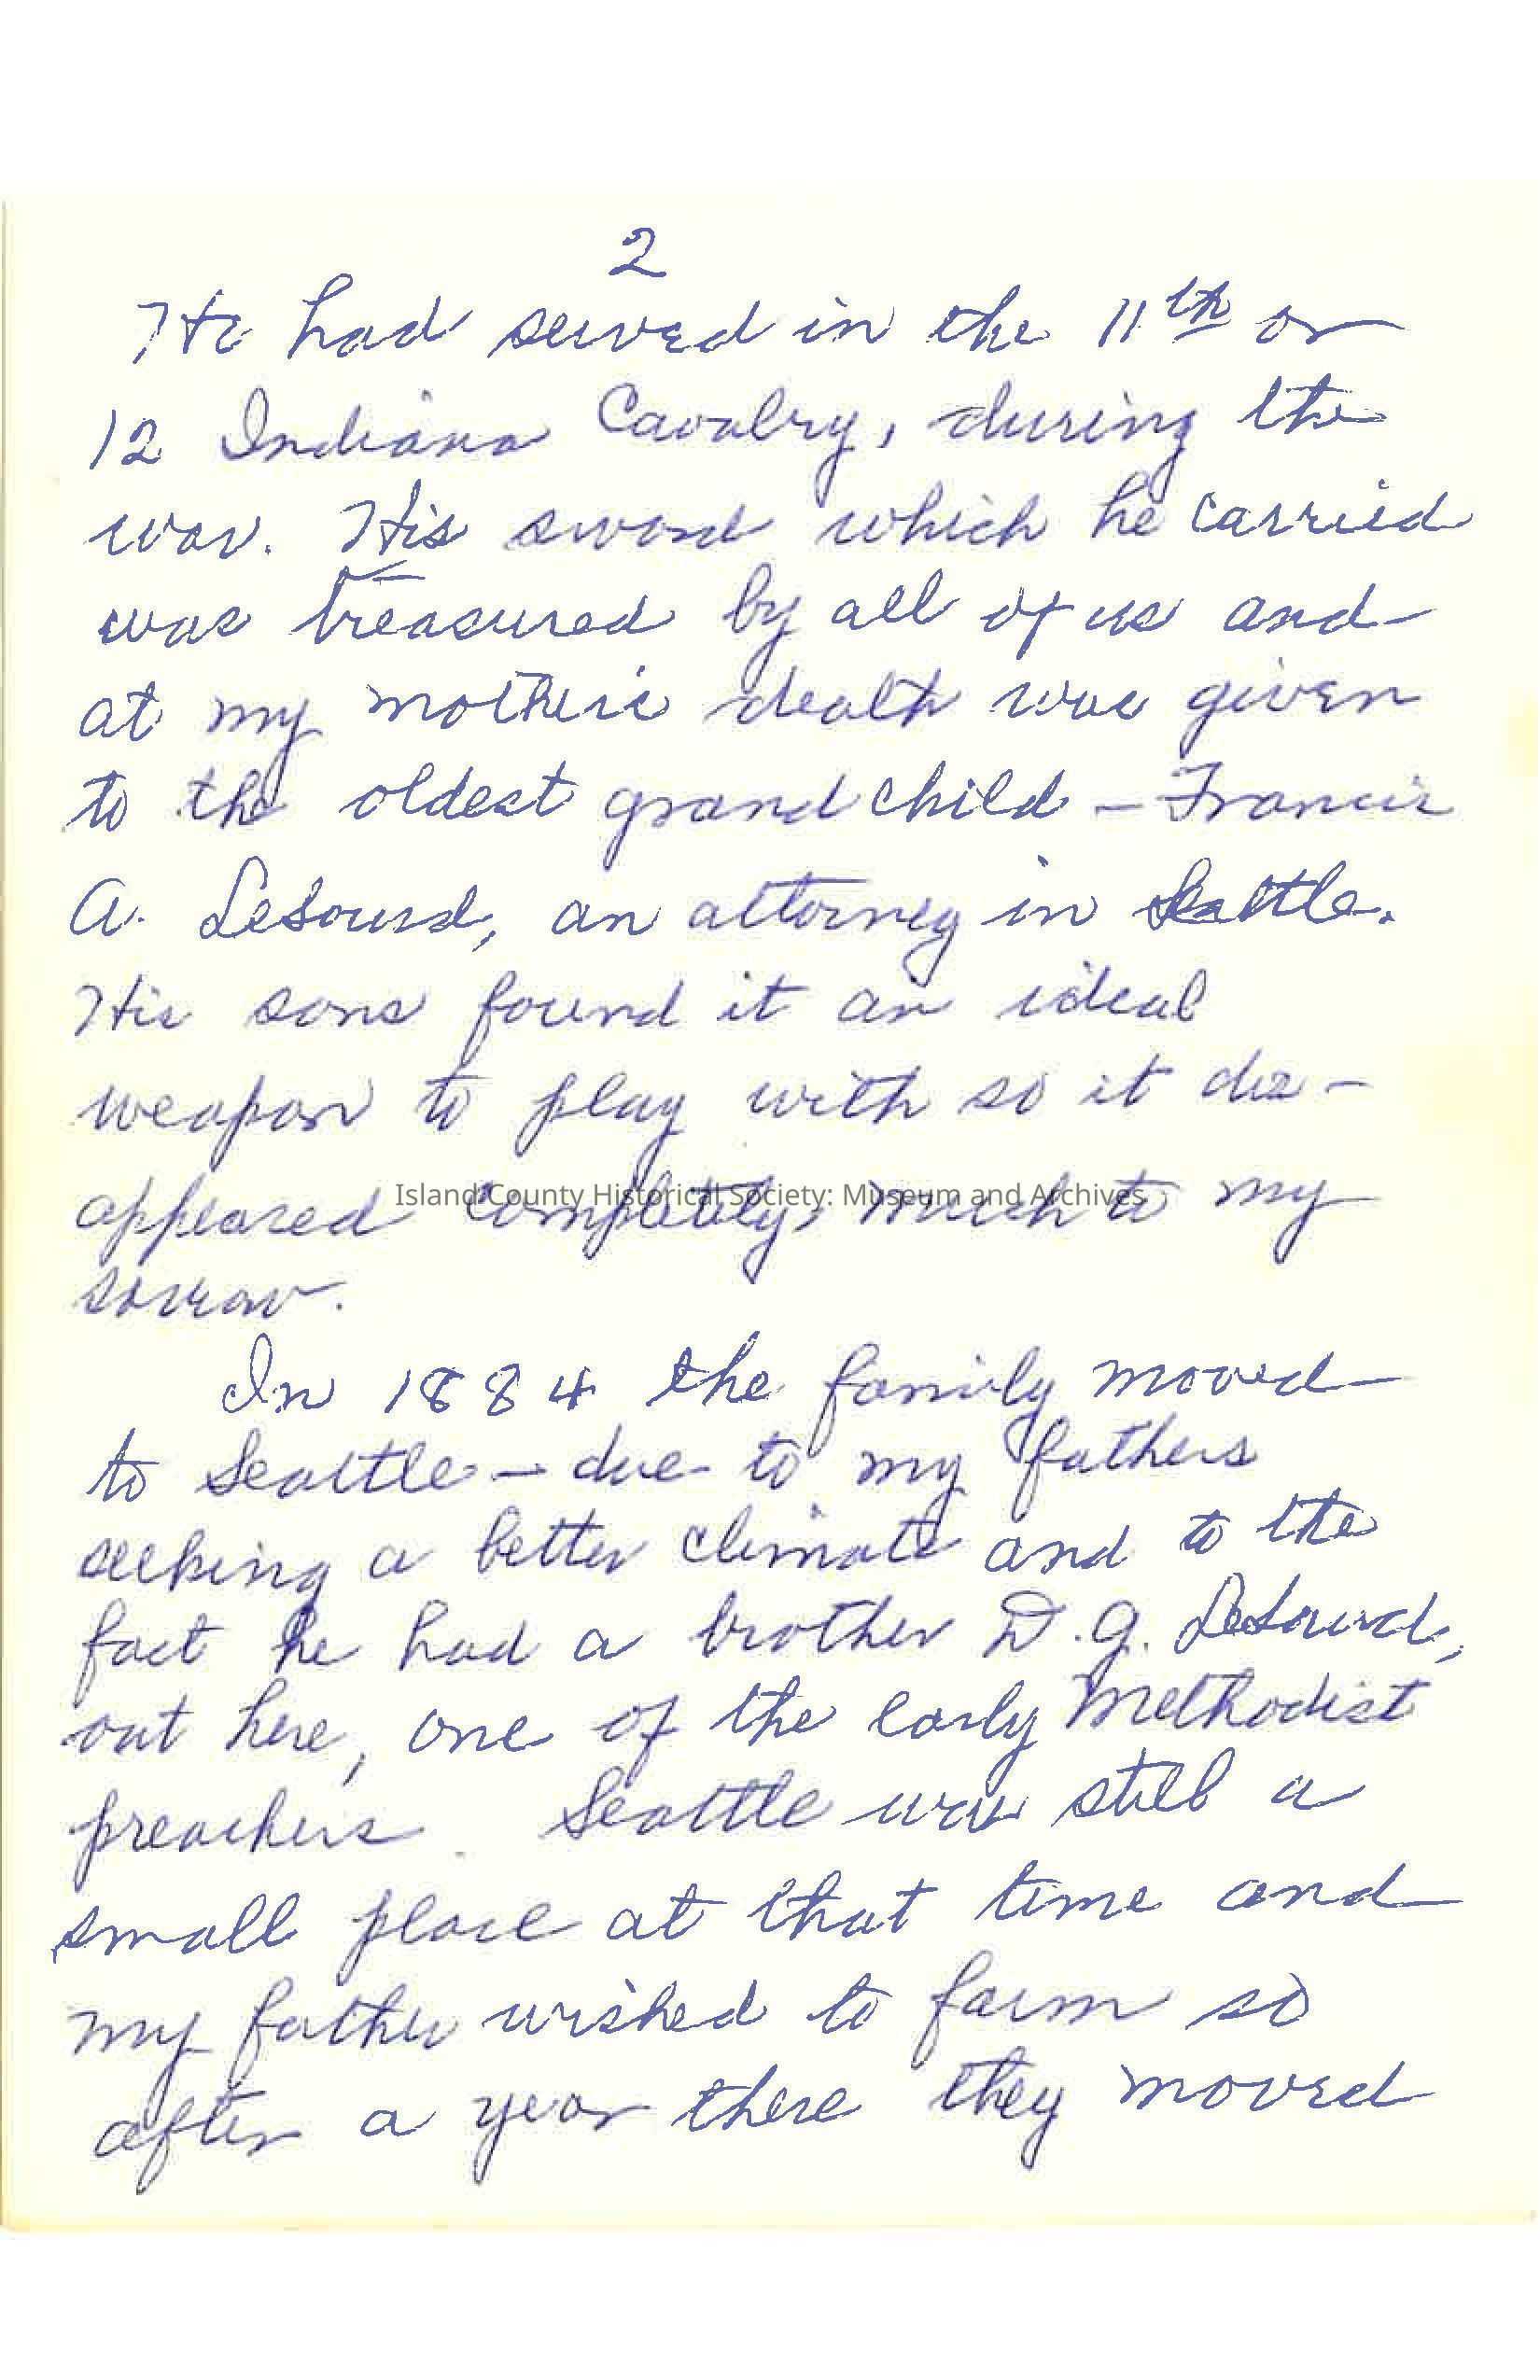 2
He had served in the 11th or
12 Indiana Cavalry, during the
war. His sword which he carried
was treasured by all of us and
at my mothers death was given
to the oldest grand child – Francis
A. LeSourd, an attorney in Seattle.
His sons found it an ideal
weapon to play with so it dis-
appeared completely, much to my
Island County Historical Society: Museum and Archives
sorrow.
In 1884 the family moved
to Seattle – due to my fathers
seeking a better climate and to the
fact he had a brother D.G. LeSourd,
out here, one of the early Methodist
preachers. Seattle was still a
small place at that time and
my father wished to farm so
after a year there they moved